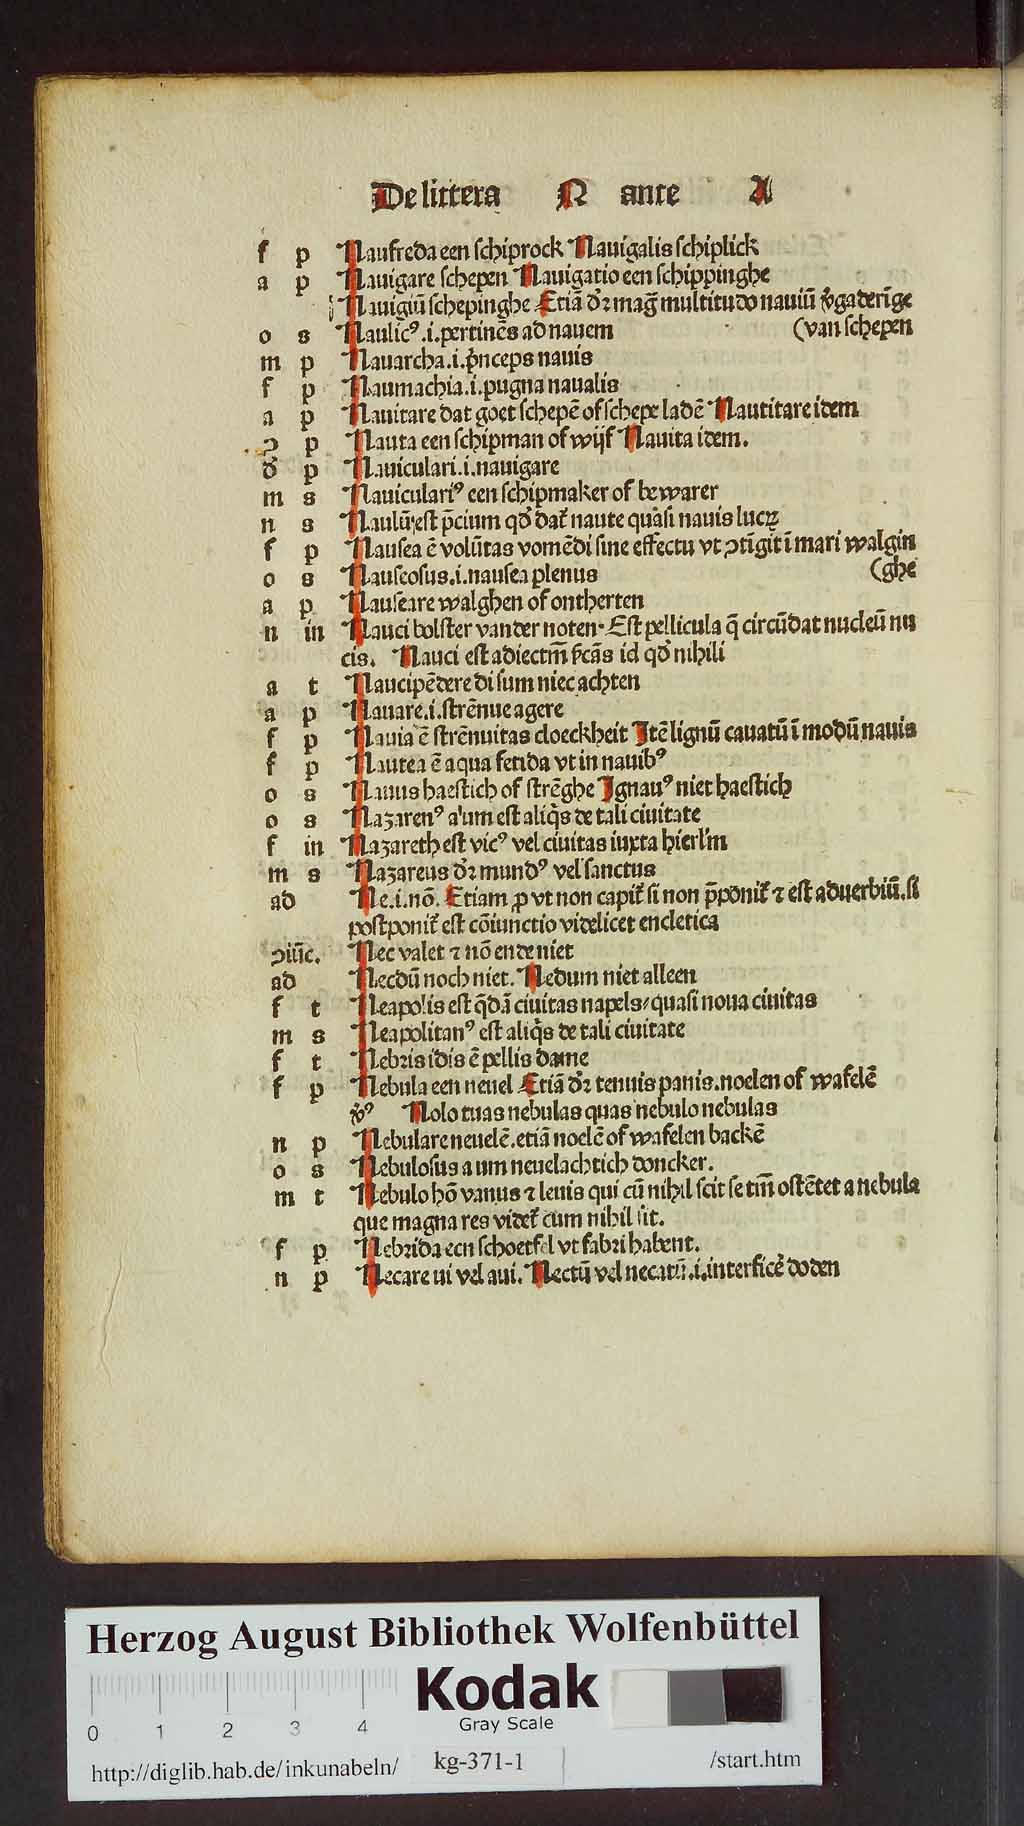 De littera N ante A
f p Naufreda een schiprock Nauigalis schiplick
a p Nauigare schepen Nauigatio een schippinghe
Nauigiū schepinghe Etiā dꝛ̄ mag̃ multitudo nauiū ꝟgaderīge
o s Naulicꝰ .i. pertinēs ad nauem (van schepen
m p Nauarcha .i. p̄nceps nauis
f p Naumachia .i. pugna naualis
a p Nauitare dat goet schepē of schepe ladē Nautitare idem
ɔ p Nauta een schipman of wijf Nauita idem.
d̄ p Nauiculari .i. nauigare
m s Nauiculariꝰ een schipmaker of bewarer
n s Naulū est p̄cium qd̓ dat᷑ naute quasi nauis lucꝝ
f p Nausea ē volūtas vomēdi sine effectu vt ɔtīgit ī mari walgin
o s Nauseosus .i. nausea plenus (ghe
a p Nauseare walghen of ontherten
n in Nauci bolster van der noten. Est pellicula q̄ circūdat nucleū nu
cis. Nauci est adiectm̄ p̄cās id qd̓ nihili
a t Naucipēdere di sum niec achten
a p Nauare .i. strēnue agere
f p Nauia ē strēnuitas cloeckheit Itē lignū cauatū ī modū nauis
f p Nautea ē aqua fetida vt in nauibꝰ
o s Nauus haestich of strēghe Ignauꝰ niet haestich
o s Nazarenꝰ a um est aliq̄s de tali ciuitate
f in Nazareth est vicꝰ vel ciuitas iuxta hierl'm
m s Nazareus dꝛ̄ mundꝰ vel sanctus
ad Ne .i. nō. Etiam ꝓ vt non capit᷑ si non p̄ponit᷑ ⁊ est aduerbiū. si
postponit᷑ est cōiunctio videlicet encletica
ɔiūc. Nec valet ⁊ nō ende niet
ad Necdū noch niet. Nedum niet alleen
f t Neapolis est q̄dā ciuitas napels/ quasi noua ciuitas
m s Neapolitanꝰ est aliq̄s de tali ciuitate
f t Nebris idis ē pellis dame
f p Nebula een neuel Etiā dꝛ̄ tenuis panis. noelen of wafelē
ꝟꝰ Nolo tuas nebulas quas nebulo nebulas
n p Nebulare neuelē. etiā noelē of wafelen backē
o s Nebulosus a um neuelachtich doncker.
m t Nebulo hō vanus ⁊ leuis qui cū nihil scit se tm̄ ostētet a nebula
que magna res videt᷑ cum nihil sit.
f p Nebrida een schoetfel vt fabri habent.
n p Necare ui vel aui. Nectū vel necatū .i. interficē doden
Herzog August Bibliothek Wolfenbüttel
Kodak
Gray Scale
0 1 2 3 4
http://diglib.hab.de/inkunabeln/ kg-371-1 /start.htm